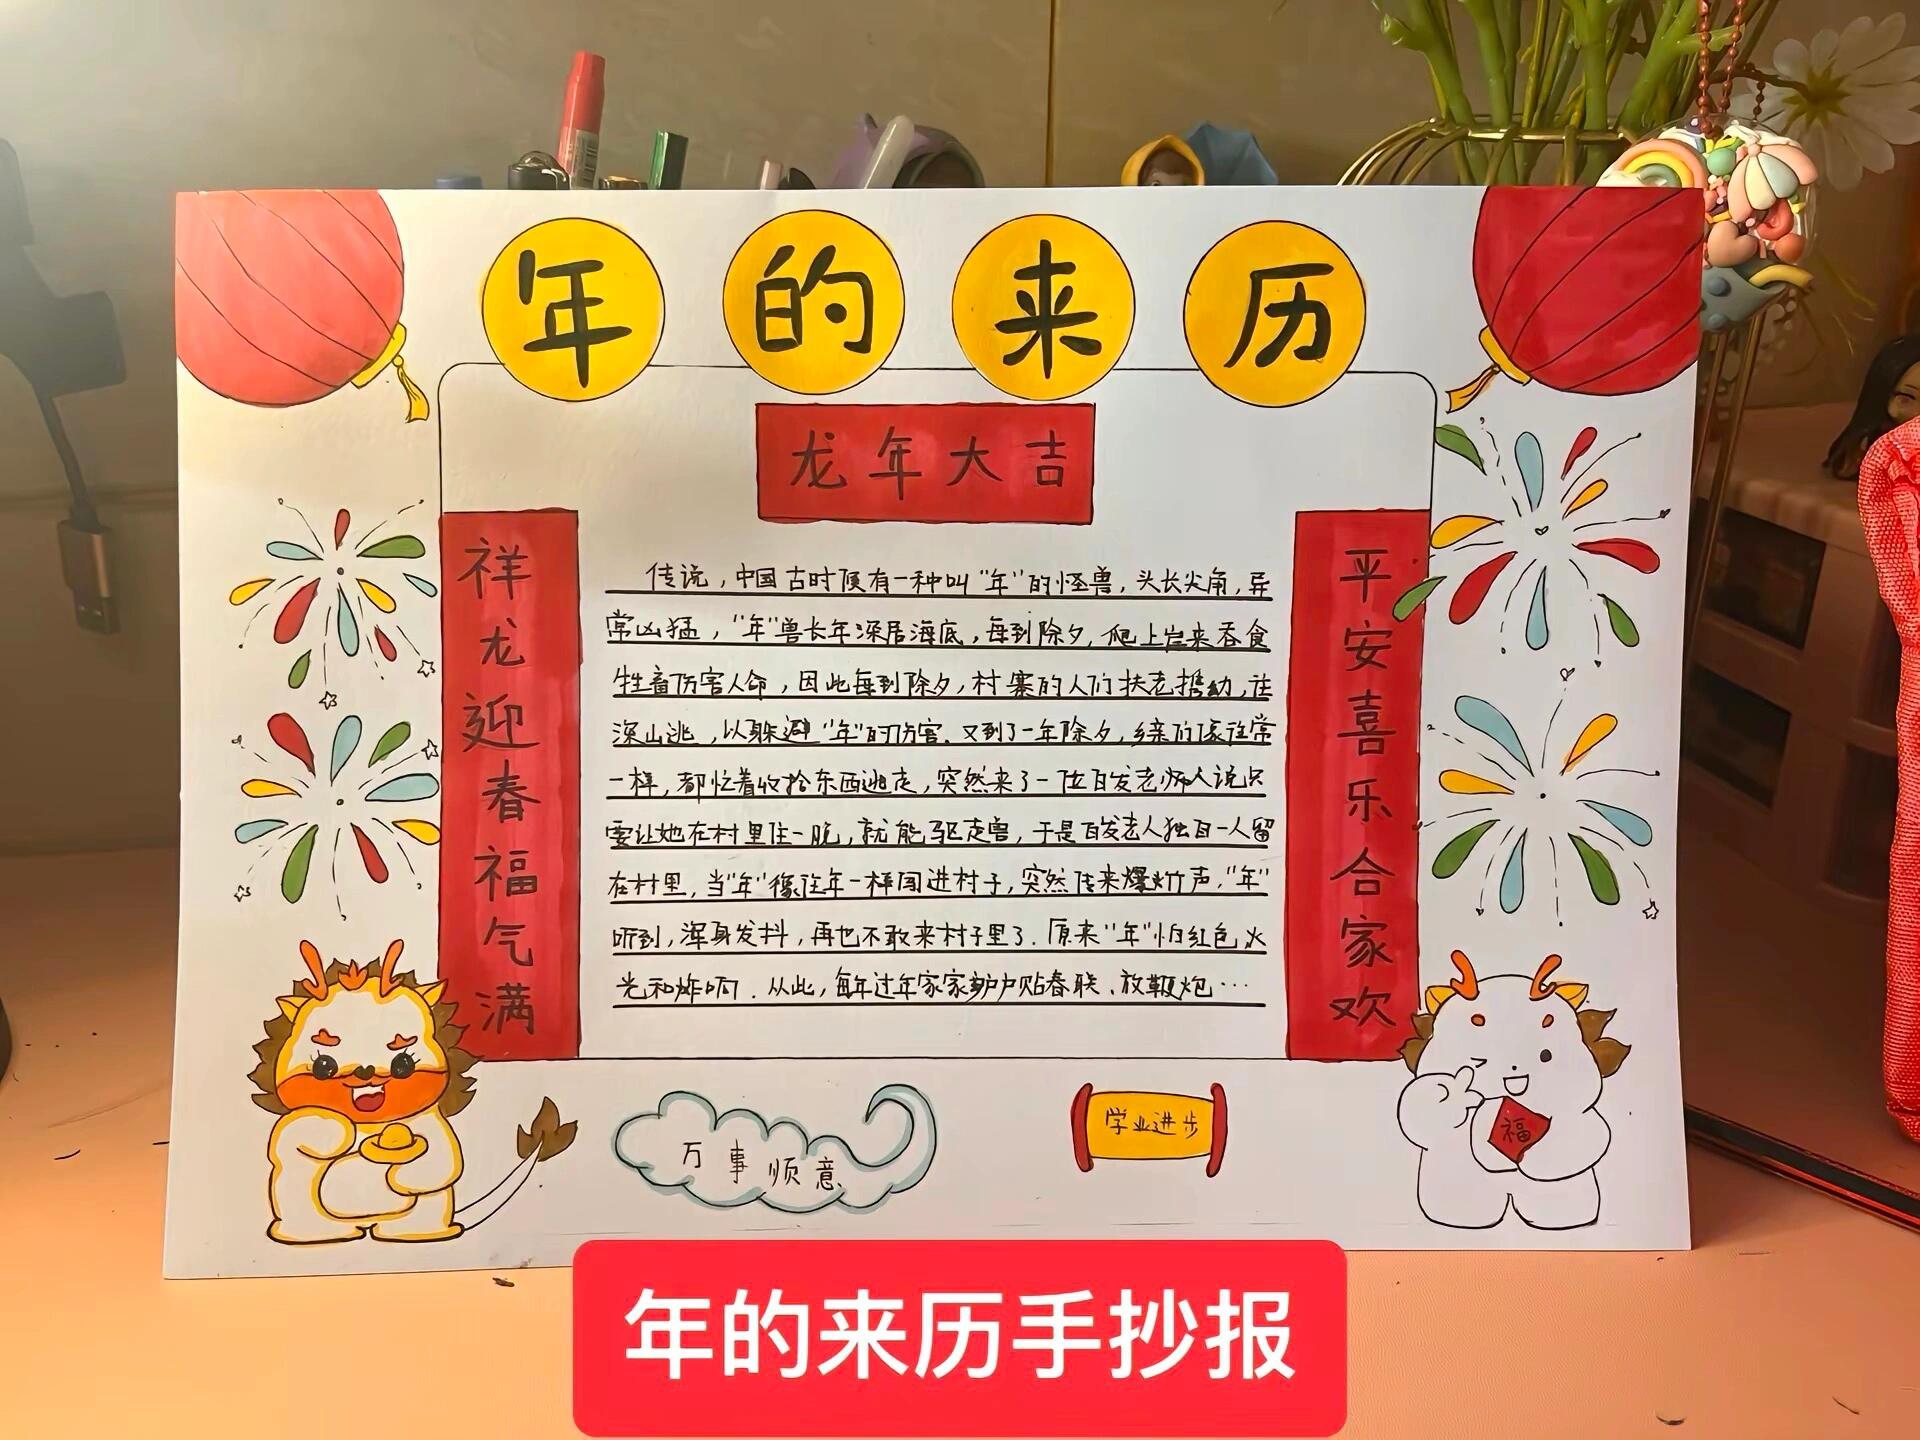 年的来历
龙年大吉
祥龙迎春福气满
平安喜乐合家欢
传说，中国古时候有一种叫"年"的怪兽，头长尖角，异
常凶猛，"年"兽长年深居海底，每到除夕，爬上岸来吞食
牲畜伤害人命，因此每到除夕，村寨的人们扶老携幼，往
深山逃，以躲避"年"的伤害.又到了一年除夕，乡亲们像往常
一样，都忙着收拾东西逃走，突然来了一位白发老妇人说只
要让她在村里住一晚，就能驱走兽，于是白发老人独自一人留
在村里，当"年"像往年一样闯进村子，突然传来爆竹声，"年"
听到，浑身发抖，再也不敢来村子里了.原来"年"怕红色火
光和炸响.从此，每年过年家家户户贴春联、放鞭炮…
万事顺意
学业进步
福
年的来历手抄报